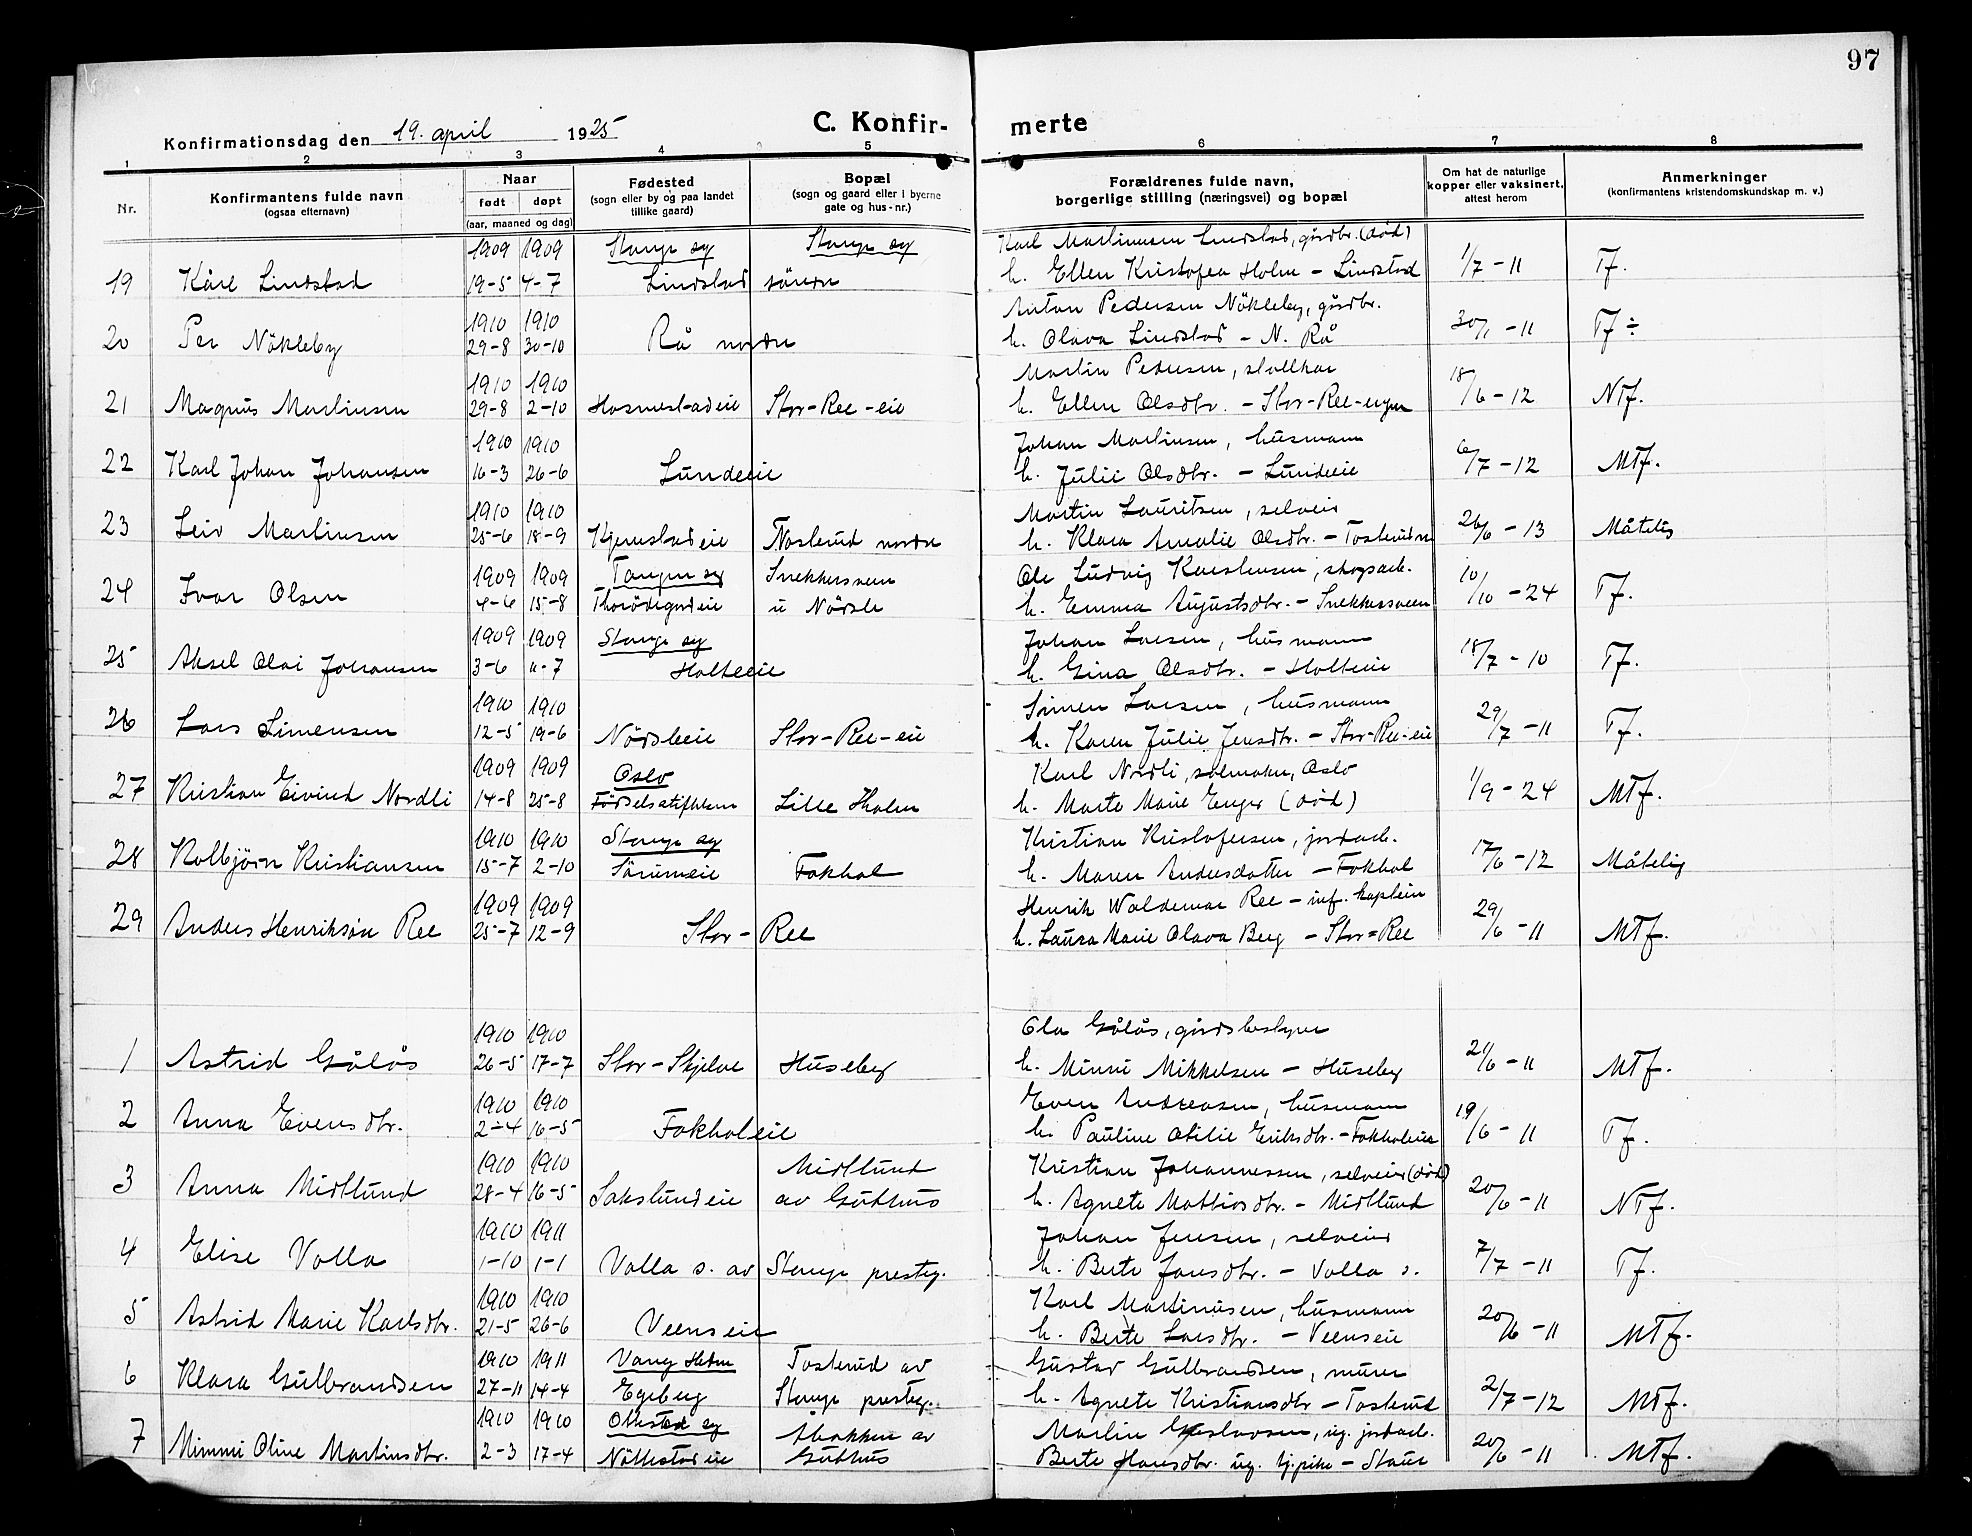 97
Konfirmationsdag den 19. april 1925
C. Konfir- merte
1 2 3 4 5 6 7 8
Nr.
Konfirmantens fulde navn
(ogsaa efternavn)
Naar
født døpt
(aar, maaned og dag)
Fødested
(sogn eller by og paa landet
tillike gaard)
Bopæl
(sogn og gaard eller i byerne
gate og hus-nr.)
Forældrenes fulde navn,
borgerlige stilling (næringsvei) og bopæl
Om hat de naturlige
kopper eller vaksinert,
attest herom
Anmerkninger
(konfirmantens kristendomskundskap m. v.)
1909 1909 Stange sg Stange sg Karl Martinusen Lindstad, gårdbr. (død)
19 Kåre Lindstad 19-5 4-7 Lindstad søndre h. Ellen Kristofea Holm - Lindstad 1/7 - 11 Tf.
1910 1910 Anton Pedersen Nökleby, gårdbr.
20 Per Nökleby 29-8 30-10 Rå nordre h. Olava Lindstad - N. Rå 30/1 - 11 Tf ÷
1910 1910 Martin Pedersen, stallkar
21 Magnus Martinsen 29-8 2-10 Hosmestadeie Stor-Ree-eie h. Ellen Olsdtr. - Stor-Ree-eigen 18/6 - 12 NTf.
1910 1910 Johan Martinsen, husmann
22 Karl Johan Johansen 16-3 26-6 Lundeeie h. Julie Olsdtr. - Lundeeie 6/7 - 12 MTf.
1910 1910 Martin Lauritsen, selveier
23 Leiv Martinsen 25-6 18-9 Kjemstadeie Tosterud nordre h. Klara Amalie Olsdtr. - Tosterud n 26/6 - 13 Måtelig
1909 1909 Tangen sg Snekkersveen Ole Ludvig Karstensen, skogsarb.
24 Ivar Olsen 4-6 15-8 Thorödegårdeie u Nörsle h. Emma Augustsdtr. - Snekkersveen 10/10 - 24 Tf.
1909 1909 Stange sg Johan Larsen, husmann
25 Aksel Olai Johansen 3-6 11-7 Holteeie h. Gina Olsdtr. - Holteeie 18/7 - 10 Tf.
1910 1910 Simen Larsen, husmann
26 Lars Simensen 12-5 19-6 Nörsleeie Stor-Ree-eie h. Karen Julie Jensdtr. - Stor-Ree-eie 29/7 - 11 Tf.
1909 1909 Oslo Karl Nordli, salmaker, Oslo
27 Kristian Eivind Nordli 14-8 25-8 Fødselsstiftelsen Lille Holm h. Marte Marie Enger (død) 1/9 - 24 MTf.
1910 1910 Stange sg Kristian Kristofersen, jordarb.
28 Kolbjörn Kristiansen 15-7 2-10 Sörumeie Fokhol h. Maren Andersdatter - Fokhol 17/6 - 12 Måtelig
1909 1909 Henrik Waldemar Ree - inf. kaptein
29 Anders Henriksön Ree 25-7 12-9 Stor-Ree h. Laura Marie Olava Berg - Stor-Ree 29/6 - 11 MTf.
1910 1910 Ola Gålås, gårdsbestyrer
1 Astrid Gålås 26-5 17-7 Stor-Skjelve Huseby h. Minni Mikkelsen - Huseby 21/6 - 11 MTf.
1910 1910 Even Andreasen, husmann
2 Anna Evensdtr. 2-4 16-5 Fokholeie h. Pauline Otilie Eriksdtr. - Fokholeie 19/6 - 11 Tf.
1910 1910 Midtlund Kristian Johannessen, selveier (død)
3 Anna Midtlund 28-4 16-5 Sakslundeie av Guthus h. Agnete Mattiasdtr. - Midtlund 20/6 - 11 NTf.
1910 1911 Johan Jensen, selveier
4 Elise Volla 1-10 1-1 Volla s. av Stange presteg. h. Berte Jansdtr. - Volla s. 7/7 - 11 Tf.
1910 1910 Karl Martinusen, husmann
5 Astrid Marie Karlsdtr. 21-5 26-6 Veenseie h. Berte Larsdtr. - Veenseie 20/6 - 11 MTf.
1910 1911 Vang Hedm Tosterud av Gustav Gulbrandsen, murer
6 Klara Gulbrandsen 27-11 14-4 Egeberg Stange presteg. h. Agnete Kristiansdtr - Tosterud 2/7 - 12 MTf.
1910 1910 Ottestad sg Åbakken av Martin Gustavsen, ug. jordarb.
7 Mimmi Oline Martinsdtr. 2-3 17-4 Nöttestadeie Guthus Berte Hansdtr. ug. tj.pike - Staur 20/6 - 11 MTf.